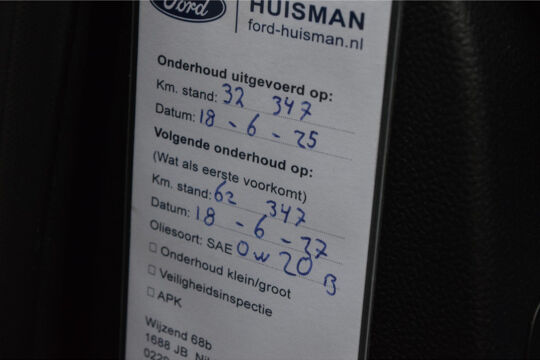 Ford
HUISMAN
ford-huisman.nl
Onderhoud uitgevoerd op:
Km. stand: 32 347
Datum: 18 - 6 - 25
Volgende onderhoud op:
(Wat als eerste voorkomt)
Km. stand: 62 347
Datum: 18 - 6 - 27
Oliesoort: SAE 0W20 B
Onderhoud klein/groot
Veiligheidsinspectie
APK
Wijzend 68b
1688 JB